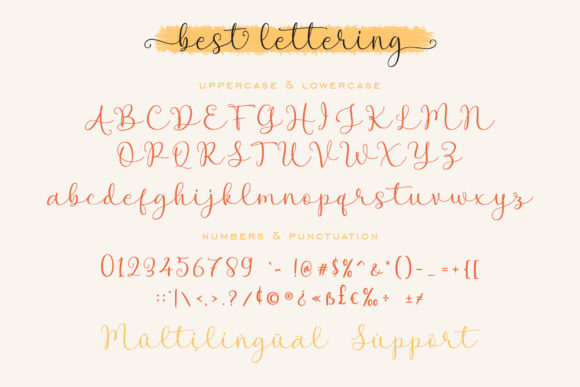 best lettering
UPPERCASE & LOWERCASE
ABCDEFGHIJKLMN
OPQRSTUVWXYZ
abcdefghijklmnopqrstuvwxyz
NUMBERS & PUNCTUATION
0123456789 `~ !@#$%^&*()-_=+{[
::"|\<,>.?/¢©®¿«ß£€‰÷ ±≠
Mültïlingüäl Süppört